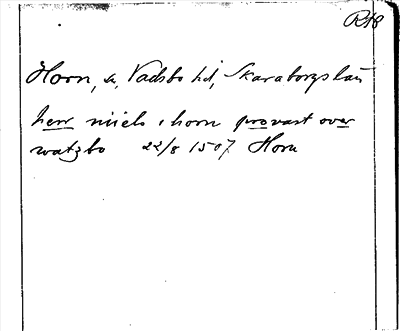 RA8
Horn, sn, Vadsbo hd, Skaraborgs län
herr niiels i horn provast over
watzbo 22/8 1507 Horn